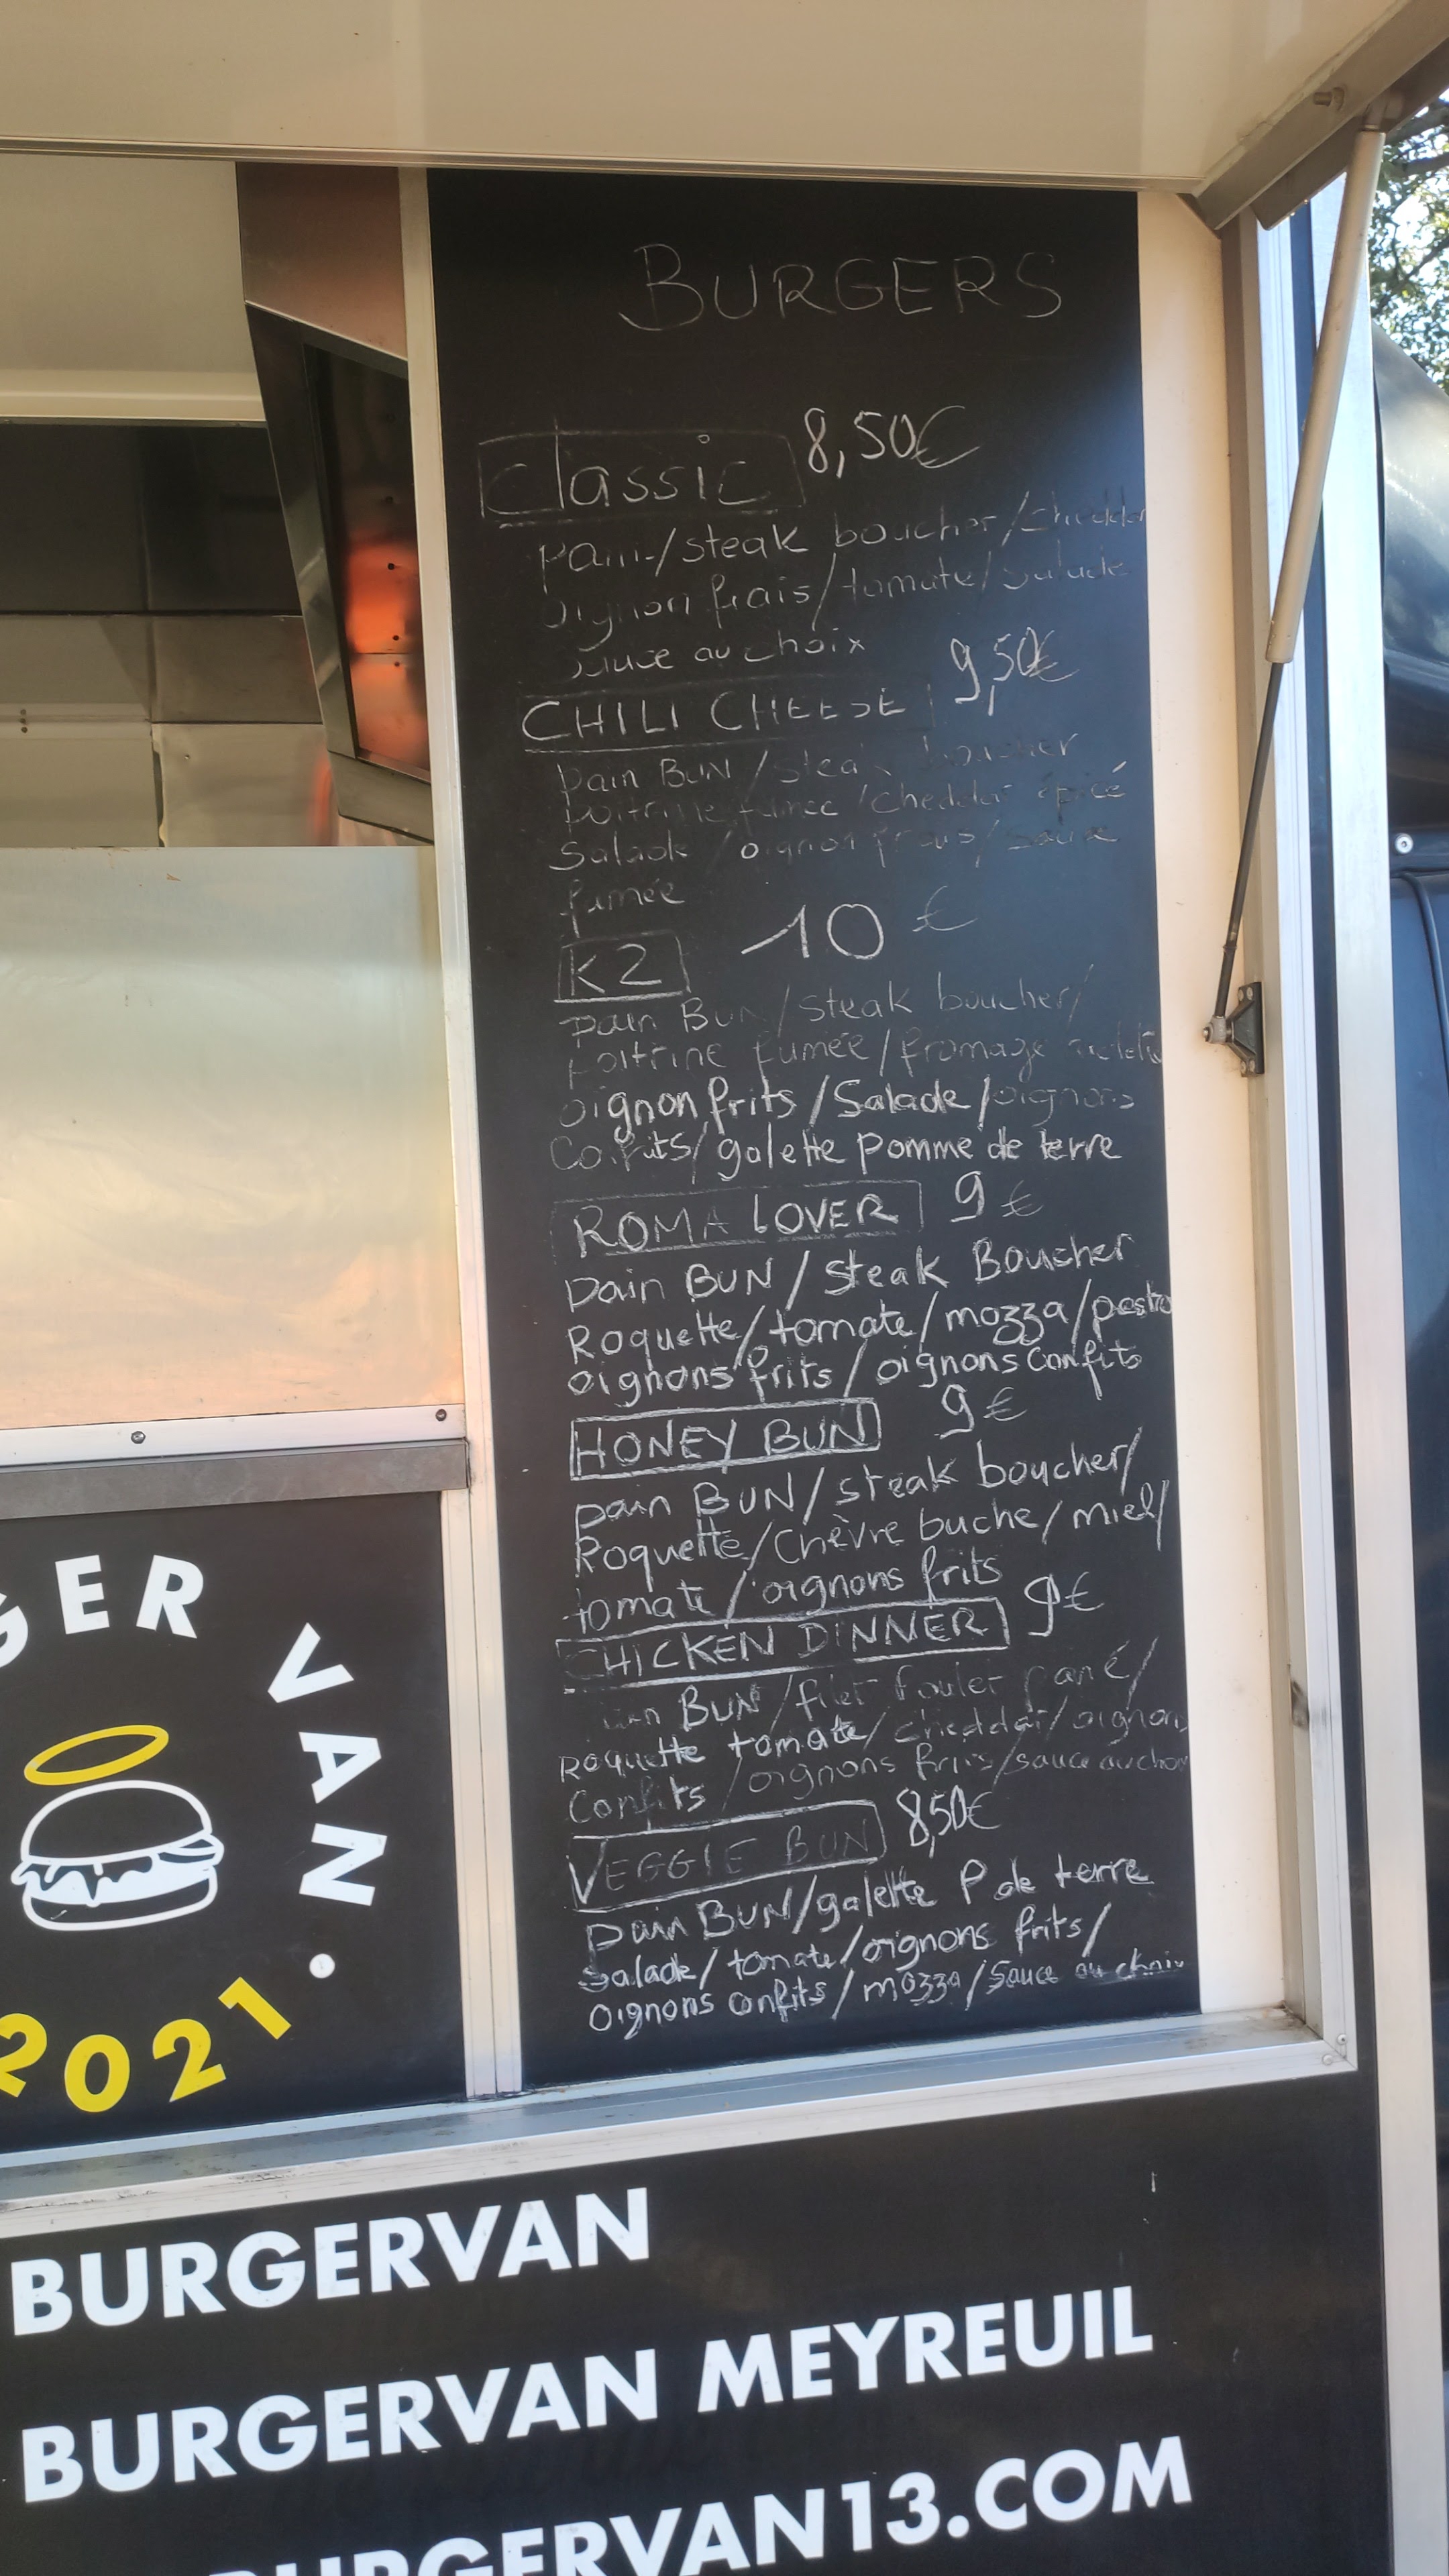 BURGERS
classic 8,50€
pain/steak boucher/cheddar
oignon frais/tomate/salade
sauce au choix
CHILI CHEESE 9,50€
pain BUN/steak boucher
poitrine fumée/cheddar épicé
Salade/oignon frais/sauce
fumée
K2 10 €
pain BUN/steak boucher/
poitrine fumée/fromage
oignon frits/Salade/oignons
Confits/galette pomme de terre
ROMA LOVER 9 €
pain BUN/steak Boucher
Roquette/tomate/mozza/pesto
oignons frits/oignons Confits
HONEY BUN 9€
pain BUN/steak boucher/
Roquette/Chèvre buche/miel/
tomate/oignons frits
CHICKEN DINNER 9€
pain BUN/filet Poulet pané/
Roquette tomate/cheddar/oignons
Confits/oignons frits/sauce au choix
VEGGIE BUN 8,50€
Pain BUN/galette P de terre
Salade/tomate/oignons frits/
Oignons confits/mozza/Sauce au choix
GER VAN .
2021
BURGERVAN
BURGERVAN MEYREUIL
BURGERVAN13.COM